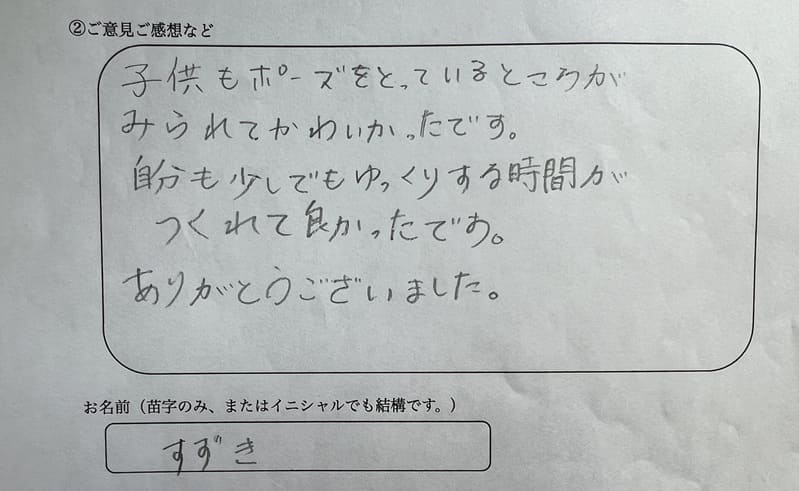 ②ご意見ご感想など
子供もポーズをとっているところが
みられてかわいかったです。
自分も少しでもゆっくりする時間が
つくれて良かったです。
ありがとうございました。
お名前（苗字のみ、またはイニシャルでも結構です。）
すずき